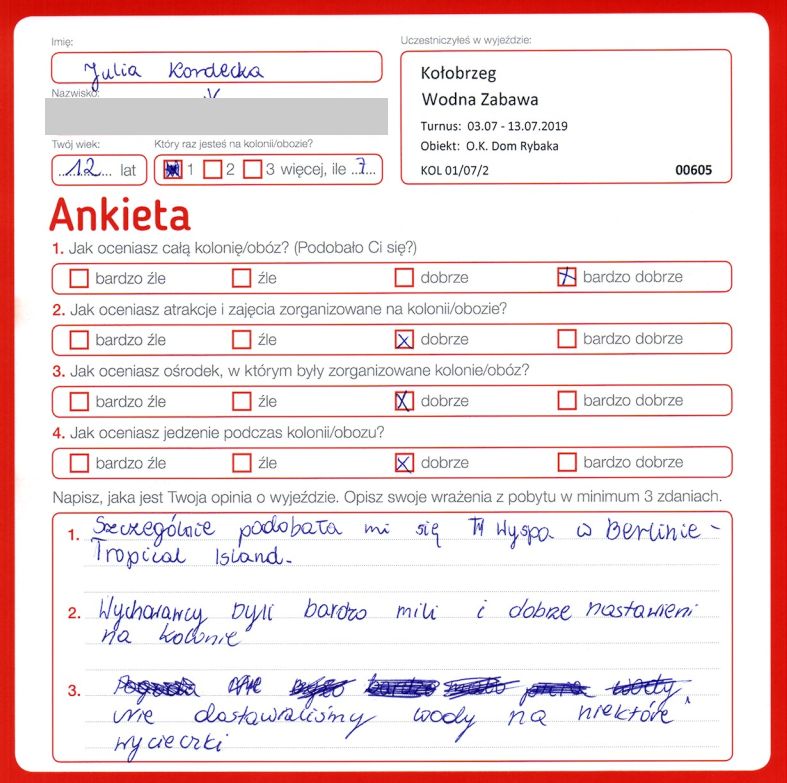 Imię:
Julia Kordecka
Nazwisko:
Uczestniczyłeś w wyjeździe:
Kołobrzeg
Wodna Zabawa
Turnus: 03.07 - 13.07.2019
Obiekt: O.K. Dom Rybaka
KOL 01/07/2 00605
Twój wiek:
12 lat
Który raz jesteś na kolonii/obozie?
1 2 3 więcej, ile ..7...
Ankieta
1. Jak oceniasz całą kolonię/obóz? (Podobało Ci się?)
bardzo źle źle dobrze bardzo dobrze
2. Jak oceniasz atrakcje i zajęcia zorganizowane na kolonii/obozie?
bardzo źle źle dobrze bardzo dobrze
3. Jak oceniasz ośrodek, w którym były zorganizowane kolonie/obóz?
bardzo źle źle dobrze bardzo dobrze
4. Jak oceniasz jedzenie podczas kolonii/obozu?
bardzo źle źle dobrze bardzo dobrze
Napisz, jaka jest Twoja opinia o wyjeździe. Opisz swoje wrażenia z pobytu w minimum 3 zdaniach.
1. Szczególnie podobała mi się Wyspa w Berlinie -
Tropical Island.
2. Wychowawcy byli bardzo mili i dobrze nastawieni
na kolonie
3.
nie dostawaliśmy wody na niektóre
wycieczki